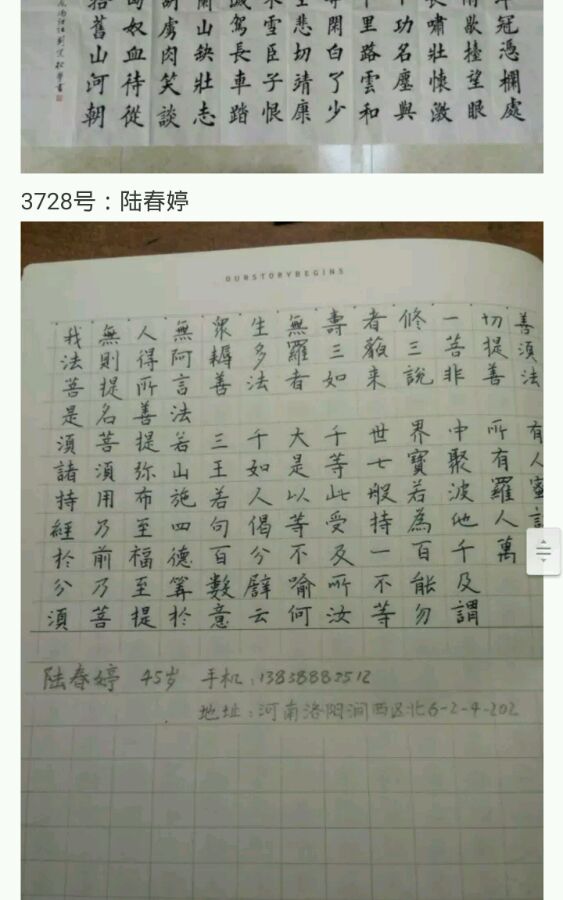 冠憑欄處
歇擡望眼
長嘯壯懷激
十功名塵與
里路雲和
閑白了少
悲切靖康
雪臣子恨
駕長車踏
山缺壯志
虜肉笑談
奴血待從
舊山河朝
3728号：陆春婷
OURSTORYBEGINS
我無人無眾生無壽者修一切善
法則得阿耨多羅三藐三菩提須
菩提所言善法者如來說非善法
是名善法
須菩提若三千大千世界中所有
諸須弥山王如是等七寶聚有人
持用布施若人以此般若波羅蜜
經乃至四句偈等受持為他人
於前福德百分不及一百千萬
分乃至筭數譬喻所不能及
須菩提於意云何汝等勿謂
陆春婷 45岁 手机：
地址：河南洛阳涧西区北6-2-4-202